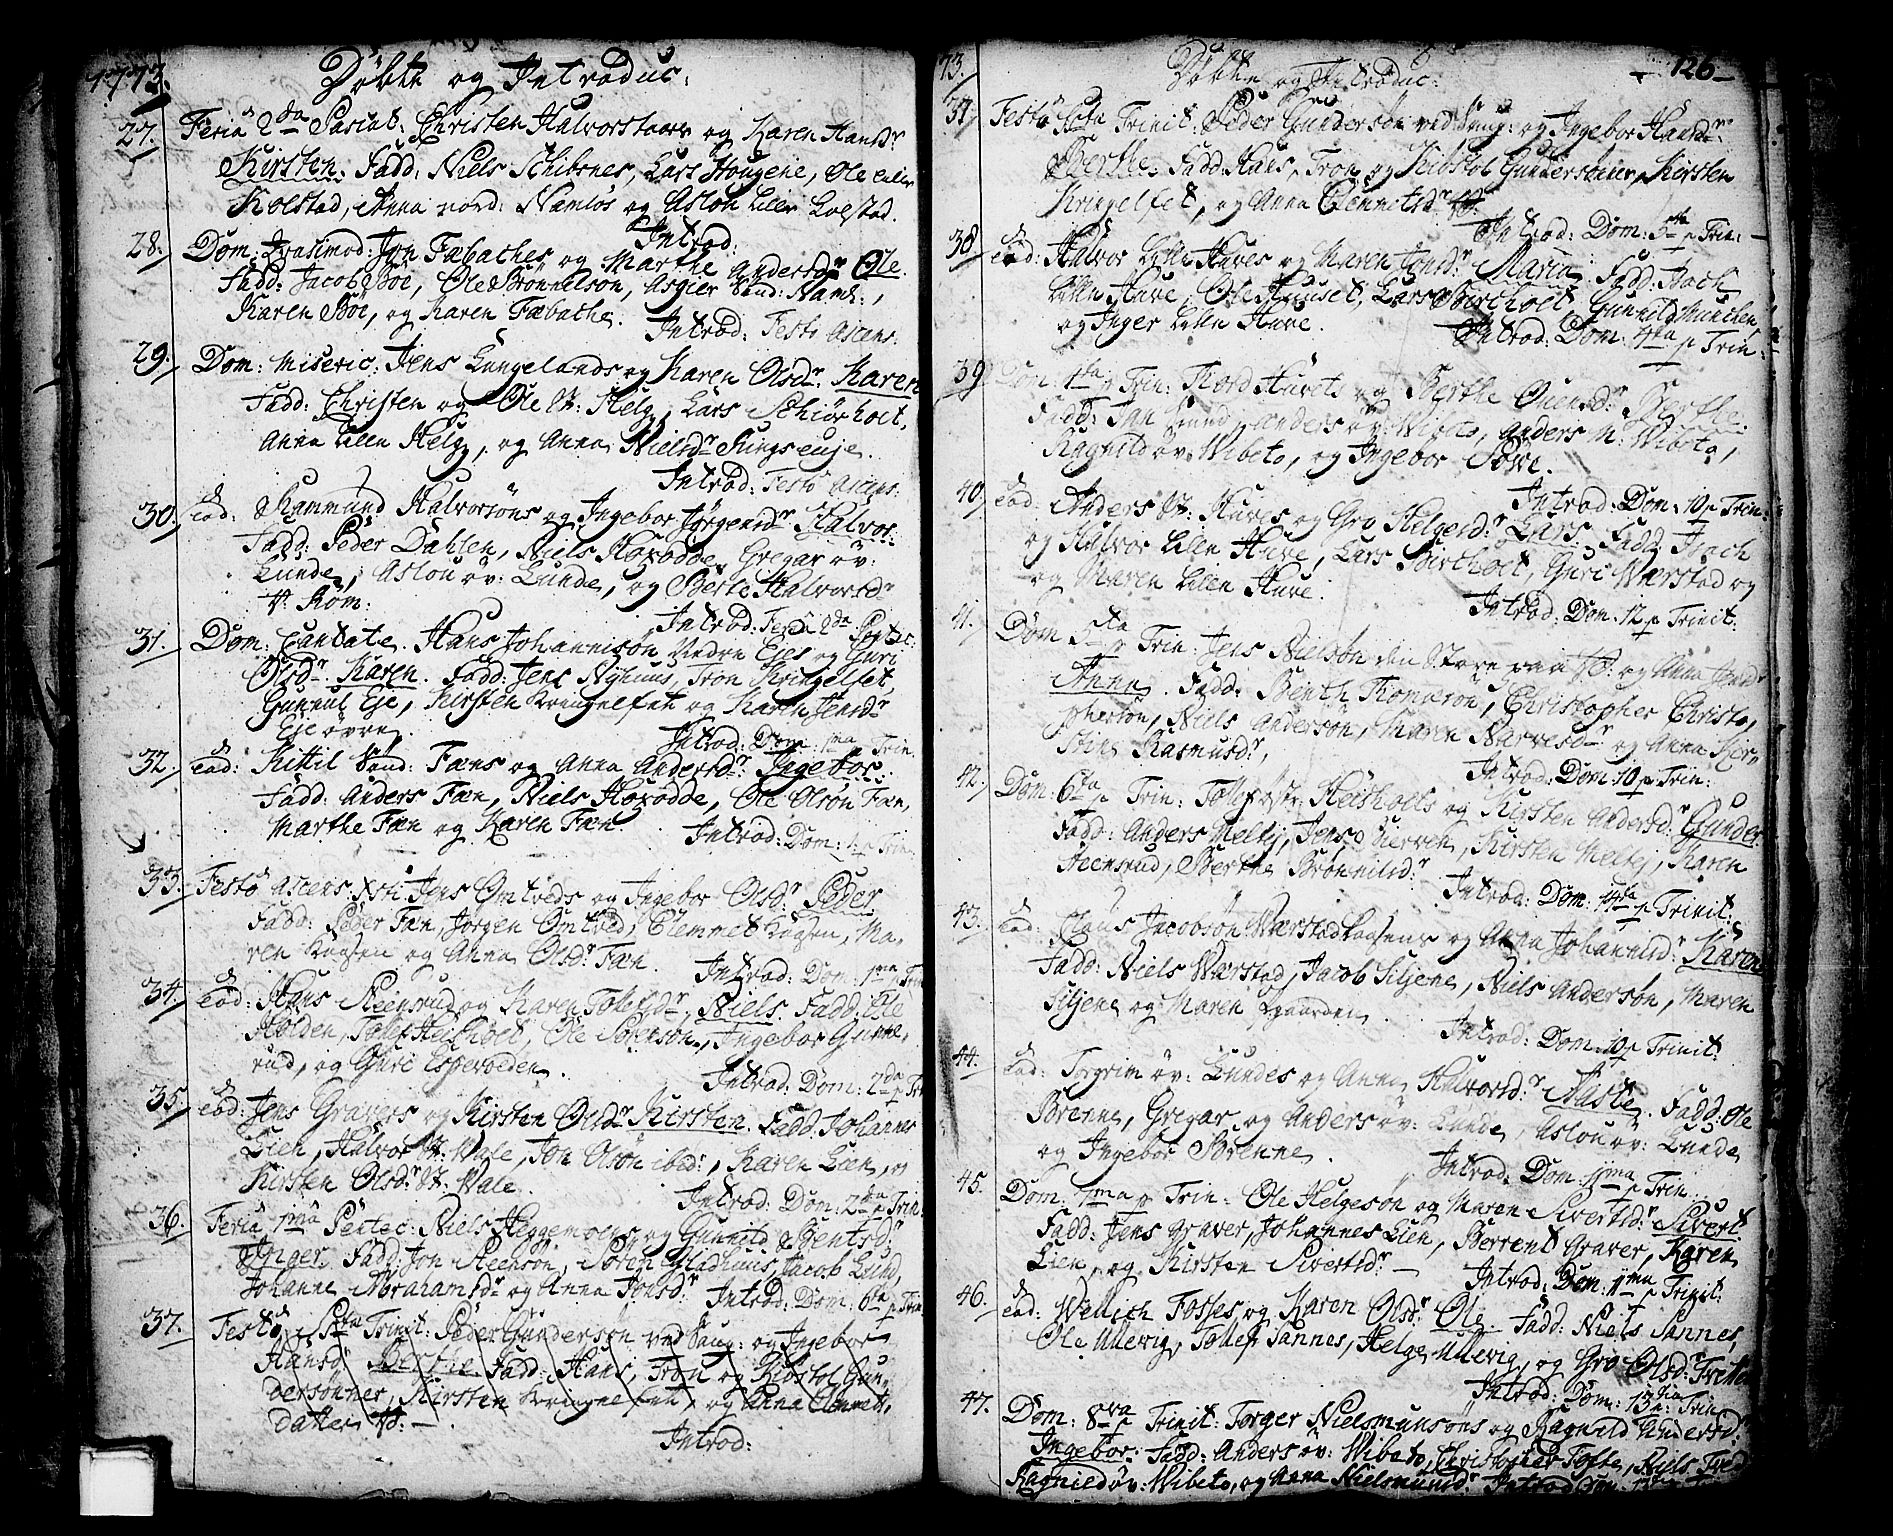 1773. Döbte og Introduc:
27. Feria 2da Pascat: Christen Halvors og Karen Hansdr
Kirsten. Fadd: Niels Schibsnes, Lars Hougene, Ole
Kolstad, Anna nord: Namlös og Aslou Lille Kolstad.
Introd:
28. Dom: Jon Fæbaches og Marthe Andersdr Ole.
Fadd: Jacob Böe, Ole Brönnelsön, Asgier Sund: Namls,
Karen Böe, og Karen Fæbache. Introd: Festo Ascens:
29. Dom: Miseric: Jens Lungelands og Karen Olsdr Karen
Fadd: Christen og Ole V: Helg, Lars Schiörholt,
Anna Lille Helg, og Anna Nielsdr Kungseije.
Introd: Festo Ascens:
30. eod: Hammund Halvorsöns og Ingebor Jörgensdr Halvor.
Fadd: Peder Dahlen, Niels Hoxodde, Gregar öv:
Lunde, Aslou öv: Lunde, og Berte Halvorsdr
V: Röm.
Introd: Feria 2da Pentec:
31. Dom: Cantate. Hans Johannisön Nedre Ejes og Guri
Olsdr Karen. Fadd: Jens Nyhuus, Tron Kringelfet,
Gunnul Eje, Kirsten Kringelfet og Karen Jensdr
Eje övre. Introd: Dom: 1ma Trin
32. eod: Kittil Sund: Fæns og Anna Andersdr Ingebor.
Fadd: Anders Fæn, Niels Hoxodde, Ole Olsön Fæn,
Marthe Fæn og Karen Fæn. Introd: Dom: Trin
33. Festo Ascens: Xsti Jens Omtveds og Ingebor Olsdr Peder
Fadd: Peder Fæn, Jörgen Omtved, Clemmet Kaasen, Ma,
ren Kaasen og Anna Olsdr Fæn. Introd: Dom: 1ma Trin
34. eod: Hans Steensrud og Karen Tolefsdr Niels. Fadd: Ole
Holden, Tolef Heisholt, Ole Sörensön, Ingebor Grinne,
rud, og Guri Esperoeden. Introd: Dom: 2da p Tr
35. eod: Jens Gravers og Kirsten Olsdr Kirsten. Fadd: Johannes
Lien, Halvor V: Vale, Jon Olsön ibid:, Karen Lien, og
Kirsten Olsdr V: Vale. Introd: Dom: 2da p Trin:
36. Feria 1ma Pentec: Niels Heggemoens og Gunnild Bentsdr
Inger. Fadd: Jon Steensön, Sören Gladhuus, Jacob Lund,
Johanne Abrahamsdr og Anna Jonsdr Introd: Dom: 6ta p Trin
37. Festo Sta Trinit: Peder Gundersön ved Saug: og Ingebor
Hansd: Berthe. Fadd: Hans, Tron og Kiöstol Gun,
dersönner, Kirsten Kringelfet, og Anna Clemmets,
datter V:
Introd:
73. Döbte og Introduc: 126
37. Festo Sta Trinit: Peder Gundersön ved Saug: og Ingebor Hansdr
Berthe. Fadd: Hans, Tron og Kiöstol Gundersönner, Kirsten
Kringelfet, og Anna Clemmetsdr
Introd: Dom: 5ta p Trin:
38. eod: Halvor Lille Hures og Maren Jonsdr Maria. Fadd: Isach
Lille Hure, Ole Huuset, Lars Birtholt, Gunnild Munchen,
og Inger Lille Hure. Introd: Dom: 4ta p Trin:
39. Dom: 1ta p Trin: Hurets og Berthe Ouensdr Berthe.
Fadd: Jan Sund, Anders öv: Wibeto, Anders M: Wibeto,
Ragnild öv: Wibeto, og Ingebor Böve.
Introd: Dom: 10 p Trin:
40. eod: Anders St: Hures og Gro Helgesdr Lars. Fadd: Isach
og Halvor Lille Hure, Lars Birtholt, Guri Værstad og
og Maren Lille Hure. Introd: Dom: 12 p Trinit:
41. Dom 5ta p Trin: Jens Nielsön den Store paa og Anna Jensdr
Anne. Fadd: Benth Thomæsön, Christopher Christo,
phersön, Niels Andersön, Maren Narvesdr og Anna Kier,
stine Rasmusdr, Introd: Dom: 10 p Trin:
42. Dom: 6ta p Trin: Tollef östr: Heisholts og Kirsten Andersdr Gunder.
Fadd: Anders Melkj, Jens Kierven, Kirsten Melkj, Karen
Steensrud, Berthe Brönnildr
Introd: Dom: 14ta p Trinit:
43. eod: Claus Jacobsön Værstad Kaasens og Anna Johannisdr Karen
Fadd: Niels Værstad, Jacob Siljene, Niels Andersön, Maren
Siljene og Maren Gaarden.
Introd: Dom: 10 p Trinit:
44. eod: Torgrim öv: Lundes og Anna Halvorsdr Aaste. Fadd: Ole
Brenne, Gregar og Anders öv: Lunde, Aslou öv: Lunde
og Ingebor Brenne. Introd: Dom: 11ma p Trin:
45. Dom: 7ma p Trin: Ole Helgesön og Maren Sivertsdr Sivert.
Fadd: Jens Graver, Johannes Lien, Berrent Graver, Karen
Lien, og Kirsten Sivertsdr Introd: Dom: 11ma p Trinit:
46. eod: Wellich Fosses og Karen Olsdr Ole. Fadd: Niels Sannes,
Ole Ullevig, Tollef Sannes, Helge Ullevig, og Gro Olsdr
Introd: Dom: 13tia p: Trin
47. Dom: 8ava p Trinit: Torger Nielsmunsöns og Ragnild Andersdr
Ingebor. Fadd: Anders öv: Wibeto, Christopher Tofte, Niels
Ragnild öv: Wibeto, og Anna Nielsmunsdr Introd: Dom: